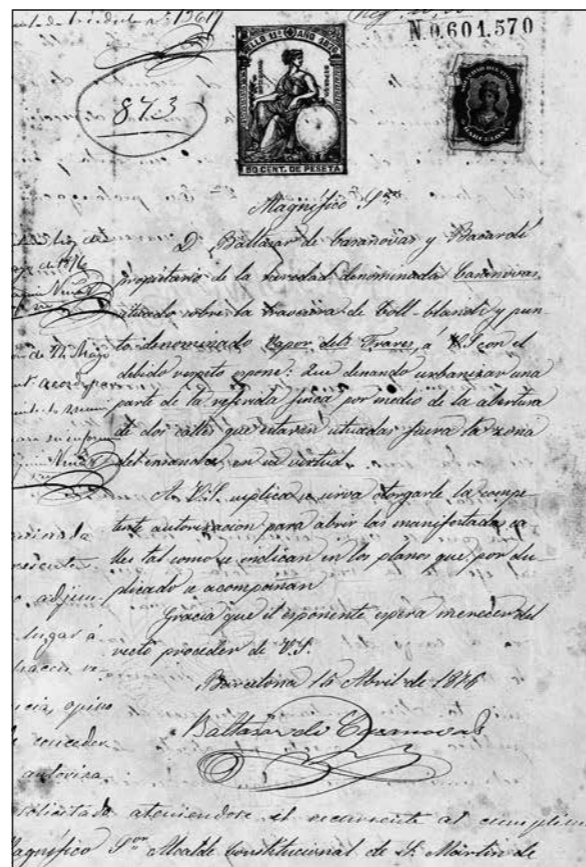 Nº 19617
N 0.601.570
873
SELLO 11º AÑO 1876
50 CENT. DE PESETA
Magnífico Sor
D. Baltasar de Casanovas y Bacardí
propietario de la heredad denominada Casanovas,
situada sobre la travesera de Coll-blanch y pun-
to denominado Vapor dels Frares, á V.S. con el
debido respeto espone: Que deseando urbanizar una
parte de la referida finca por medio de la abertura
de dos calles que estarán situadas fuera la zona
del ensanche, en su virtud.
A V.S. suplica se sirva otorgarle la compe-
tente autorizacion para abrir las manifestadas ca-
lles tal como se indican en los planos que por du-
plicado se acompañan
Gracia que el esponente espera merecer del
recto proceder de V.S.
Barcelona 16 Abril de 1876
Baltasar de Casanovas
lugar á
opino
conceder
autoriza
solicitada ateniendose el recurrente al cumplim
Magnífico Sor Alcalde Constitucional de Sn Martin de